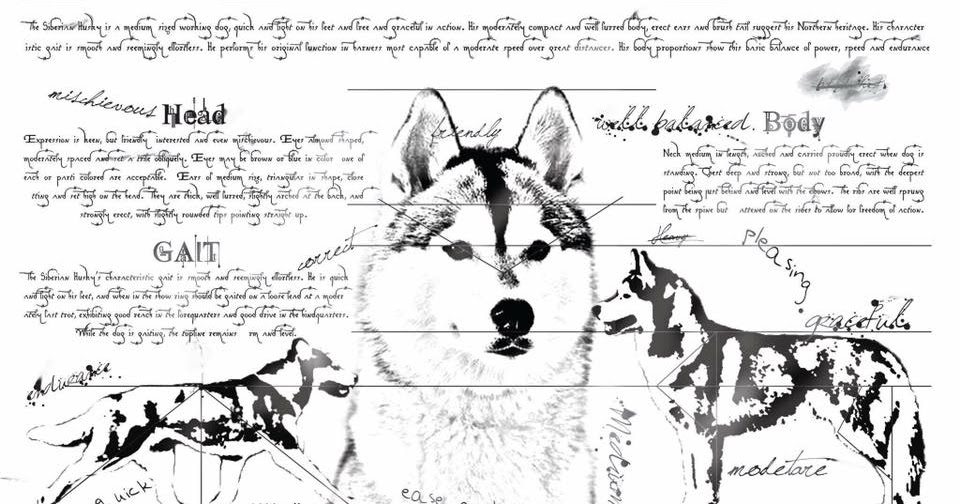 The Siberian Husky is a medium sized working dog, quick and light on his feet and free and graceful in action. His moderately compact and well furred body, erect ears and brush tail suggest his Northern heritage. His character
istic gait is smooth and seemingly effortless. He performs his original function in harness most capable of a moderate speed over great distances. His body proportions show this basic balance of power, speed and endurance
mischievous
Head
Expression is keen, but friendly interested and even mischievous. Eyes almond shaped,
moderately spaced and set a trifle obliquely. Eyes may be brown or blue in color one of
each or parti colored are acceptable. Ears of medium size, triangular in shape, close
tting and set high on the head. They are thick, well furred, slightly arched at the back, and
strongly erect, with slightly rounded tips pointing straight up.
friendly
well balanced.
Body
Neck medium in length, arched and carried proudly erect when dog is
standing. Chest deep and strong, but not too broad, with the deepest
point being just behind and level with the elbows. The ribs are well sprung
from the spine but attened on the sides to allow for freedom of action.
GAIT
The Siberian Husky's characteristic gait is smooth and seemingly effortless. He is quick
and light on his feet, and when in the show ring should be gaited on a loose lead at a moder
ately fast trot, exhibiting good reach in the forequarters and good drive in the hindquarters.
While the dog is gaiting, the topline remains rm and level.
correct
heavy
pleasing
graceful
endurance
moderare
quick
ease